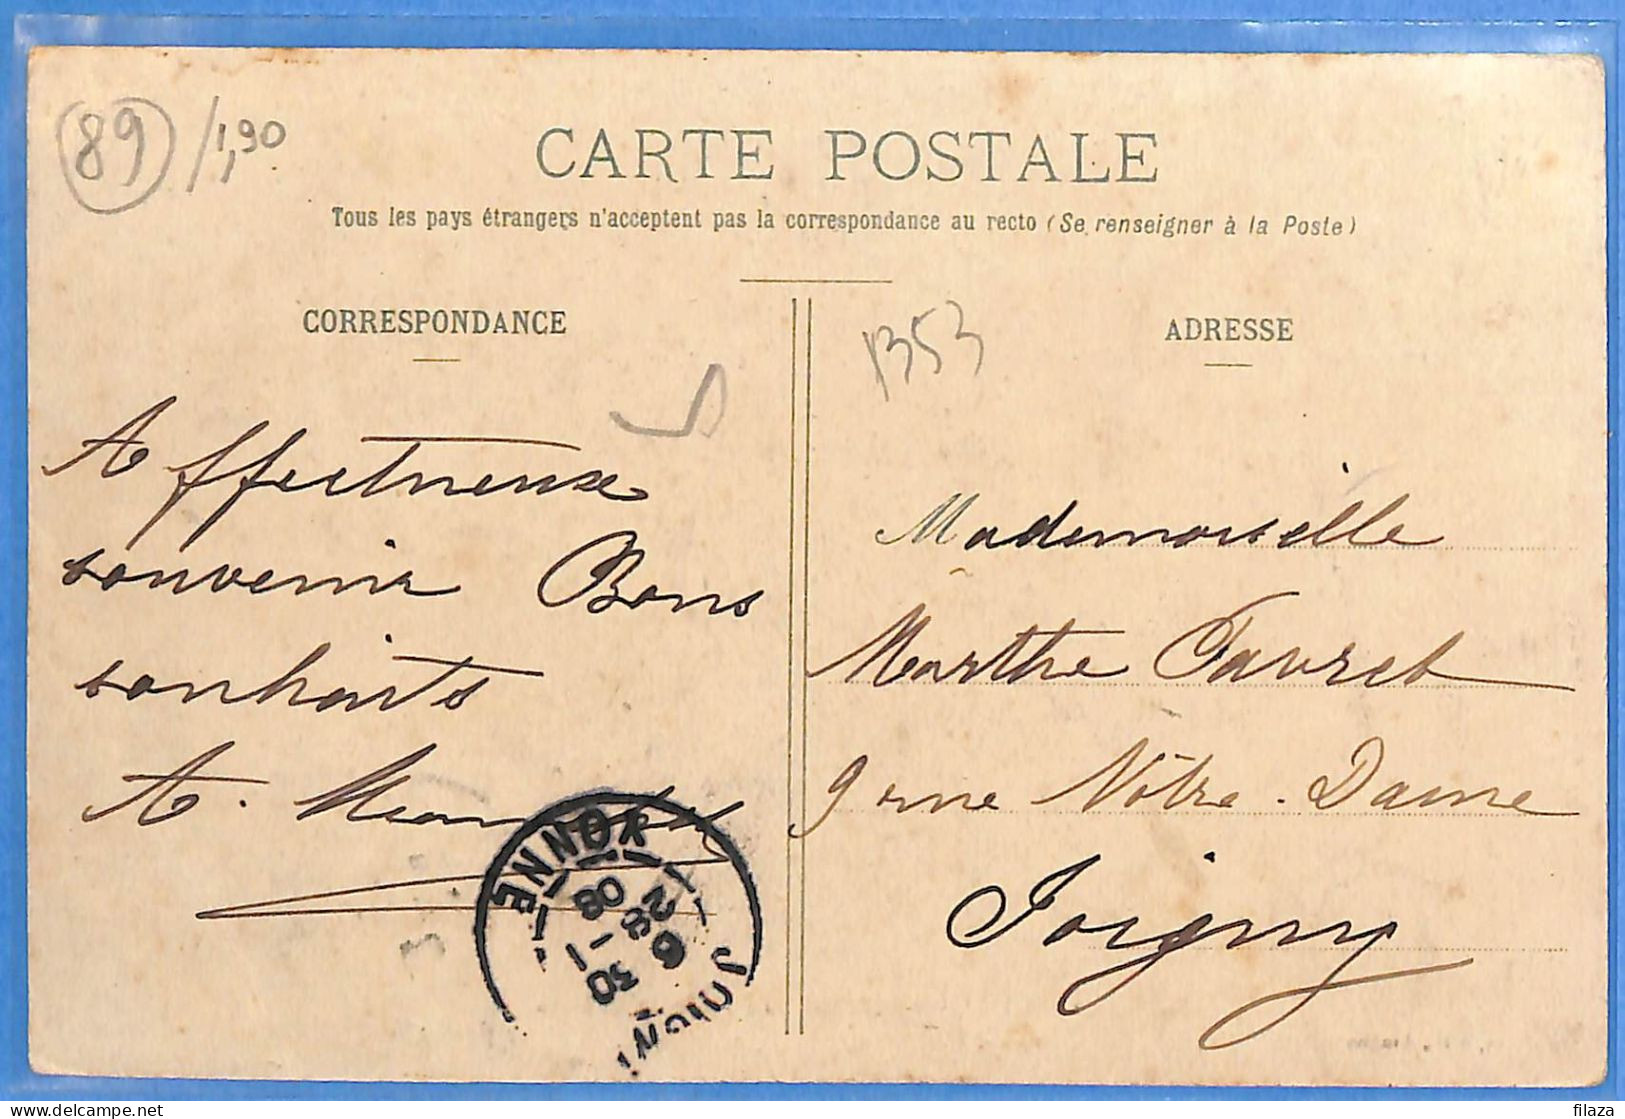 89 / 1,90
CARTE POSTALE
Tous les pays étrangers n'acceptent pas la correspondance au recto (Se renseigner à la Poste)
CORRESPONDANCE
Affectueux
souvenir Bons
souhaits
A.
ADRESSE
1353
Mademoiselle
Marthe Favret
9 rue Nôtre-Dame
Joigny
JOIGNY
YONNE
6 30
28 - 1
08
filaza
delcampe.net